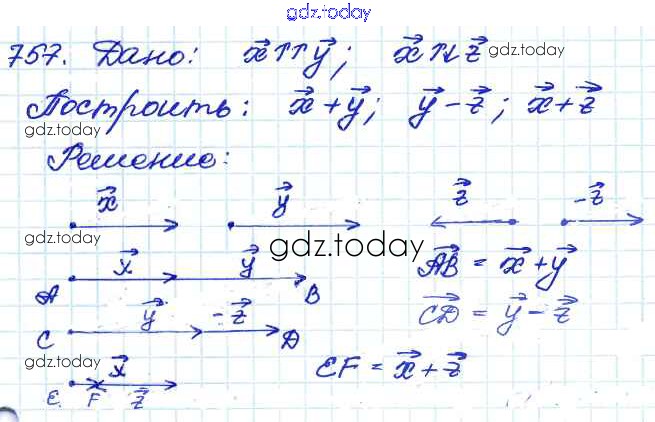 gdz.today
757. Дано: x⃗ ↑↑ y⃗; x⃗ ↑↓ z⃗ gdz.today
Построить: x⃗ + y⃗; y⃗ - z⃗; x⃗ + z⃗
gdz.today
Решение:
x⃗ y⃗ z⃗ -z⃗
gdz.today
x⃗ y⃗ gdz.today AB⃗ = x⃗ + y⃗
A B
y⃗ -z⃗ CD⃗ = y⃗ - z⃗
C D
gdz.today
x⃗ EF = x⃗ + z⃗
E F z⃗